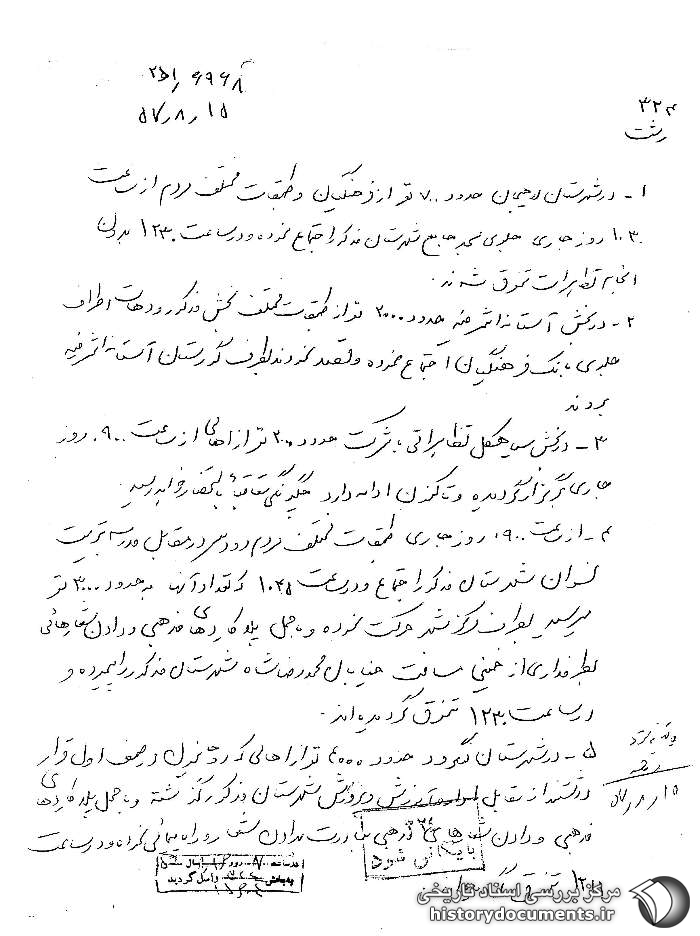 ۲۵۱٫۶۹۶۸
۵۷٫۸٫۱۵
۳۲۴
رشت
۱- در شهرستان لاهیجان حدود ۷۰۰ نفر از فرهنگیان و طبقات مختلف مردم از ساعت
۱۰۳۰ روز جاری جلوی مسجد جامع شهرستان مذکور اجتماع نموده و در ساعت ۱۲۳۰ بدون
انجام تظاهرات متفرق شدند.
۲- در بخش آستانه اشرفیه حدود ۲۰۰۰ نفر از طبقات مختلف بخش مذکور و دهات اطراف
جلوی بانک فرهنگیان اجتماع نموده و قصد دارند بطرف گورستان آستانه اشرفیه
بروند
۳- در بخش سیاهکل تظاهراتی با شرکت حدود ۲۰۰ نفر از اهالی از ساعت ۰۹۰۰ روز
جاری برگزار گردیده و تاکنون ادامه دارد چگونگی متعاقباً باستحضار خواهد رسید.
۴- از ساعت ۰۹۰۰ روز جاری طبقات مختلف مردم رودسر در مقابل مدرسه تربیت
نسوان شهرستان مذکور اجتماع و در ساعت ۱۰۴۵ که تعداد آنها به حدود ۳۰۰۰ نفر
میرسید بطرف مرکز شهر حرکت نموده و با حمل پلاکاردهای مذهبی و دادن شعارهائی
بطرفداری از خمینی مسافت خیابان محمدرضا شاه شهرستان مذکور را پیموده و
در ساعت ۱۲۳۰ متفرق گردیده‌اند.
۵- در شهرستان لنگرود حدود ۴۰۰۰ نفر از اهالی که در صف اول قرار
داشتند از مقابل آموزش و پرورش شهرستان مذکور گذشته و با حمل پلاکاردهای
مذهبی و دادن شعارهای مذهبی بدادن شعار و راه پیمائی نموده و در ساعت
۵۷٫۸٫۱۵
بایگانی شود
واصل گردید
مرکز بررسی اسناد تاریخی
historydocuments.ir